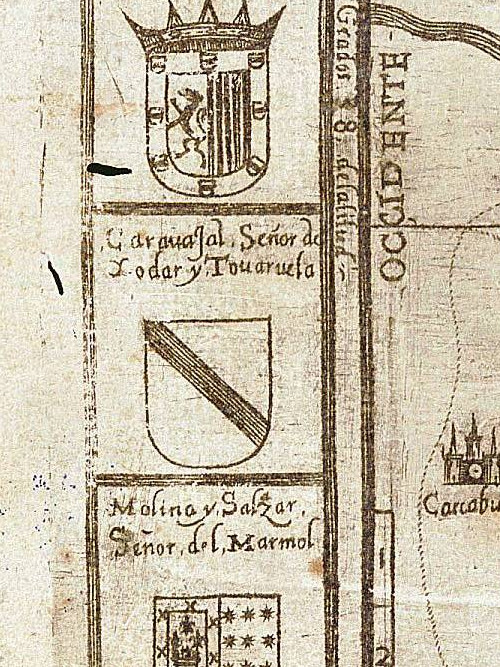 Grados 38 de latitud
OCCIDENTE
Carauajal, Señor de
Xodar y, Touaruela
Molina y, Salazar,
Señor, del, Marmol
1
2